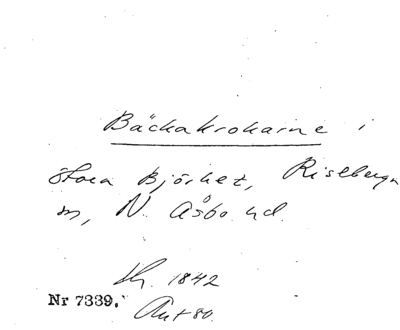 Bäckakrokarne i
Stora Björket, Riseberga
m, N. Åsbo hd.
Sk. 1842
Nr 7339.
Ant 80.